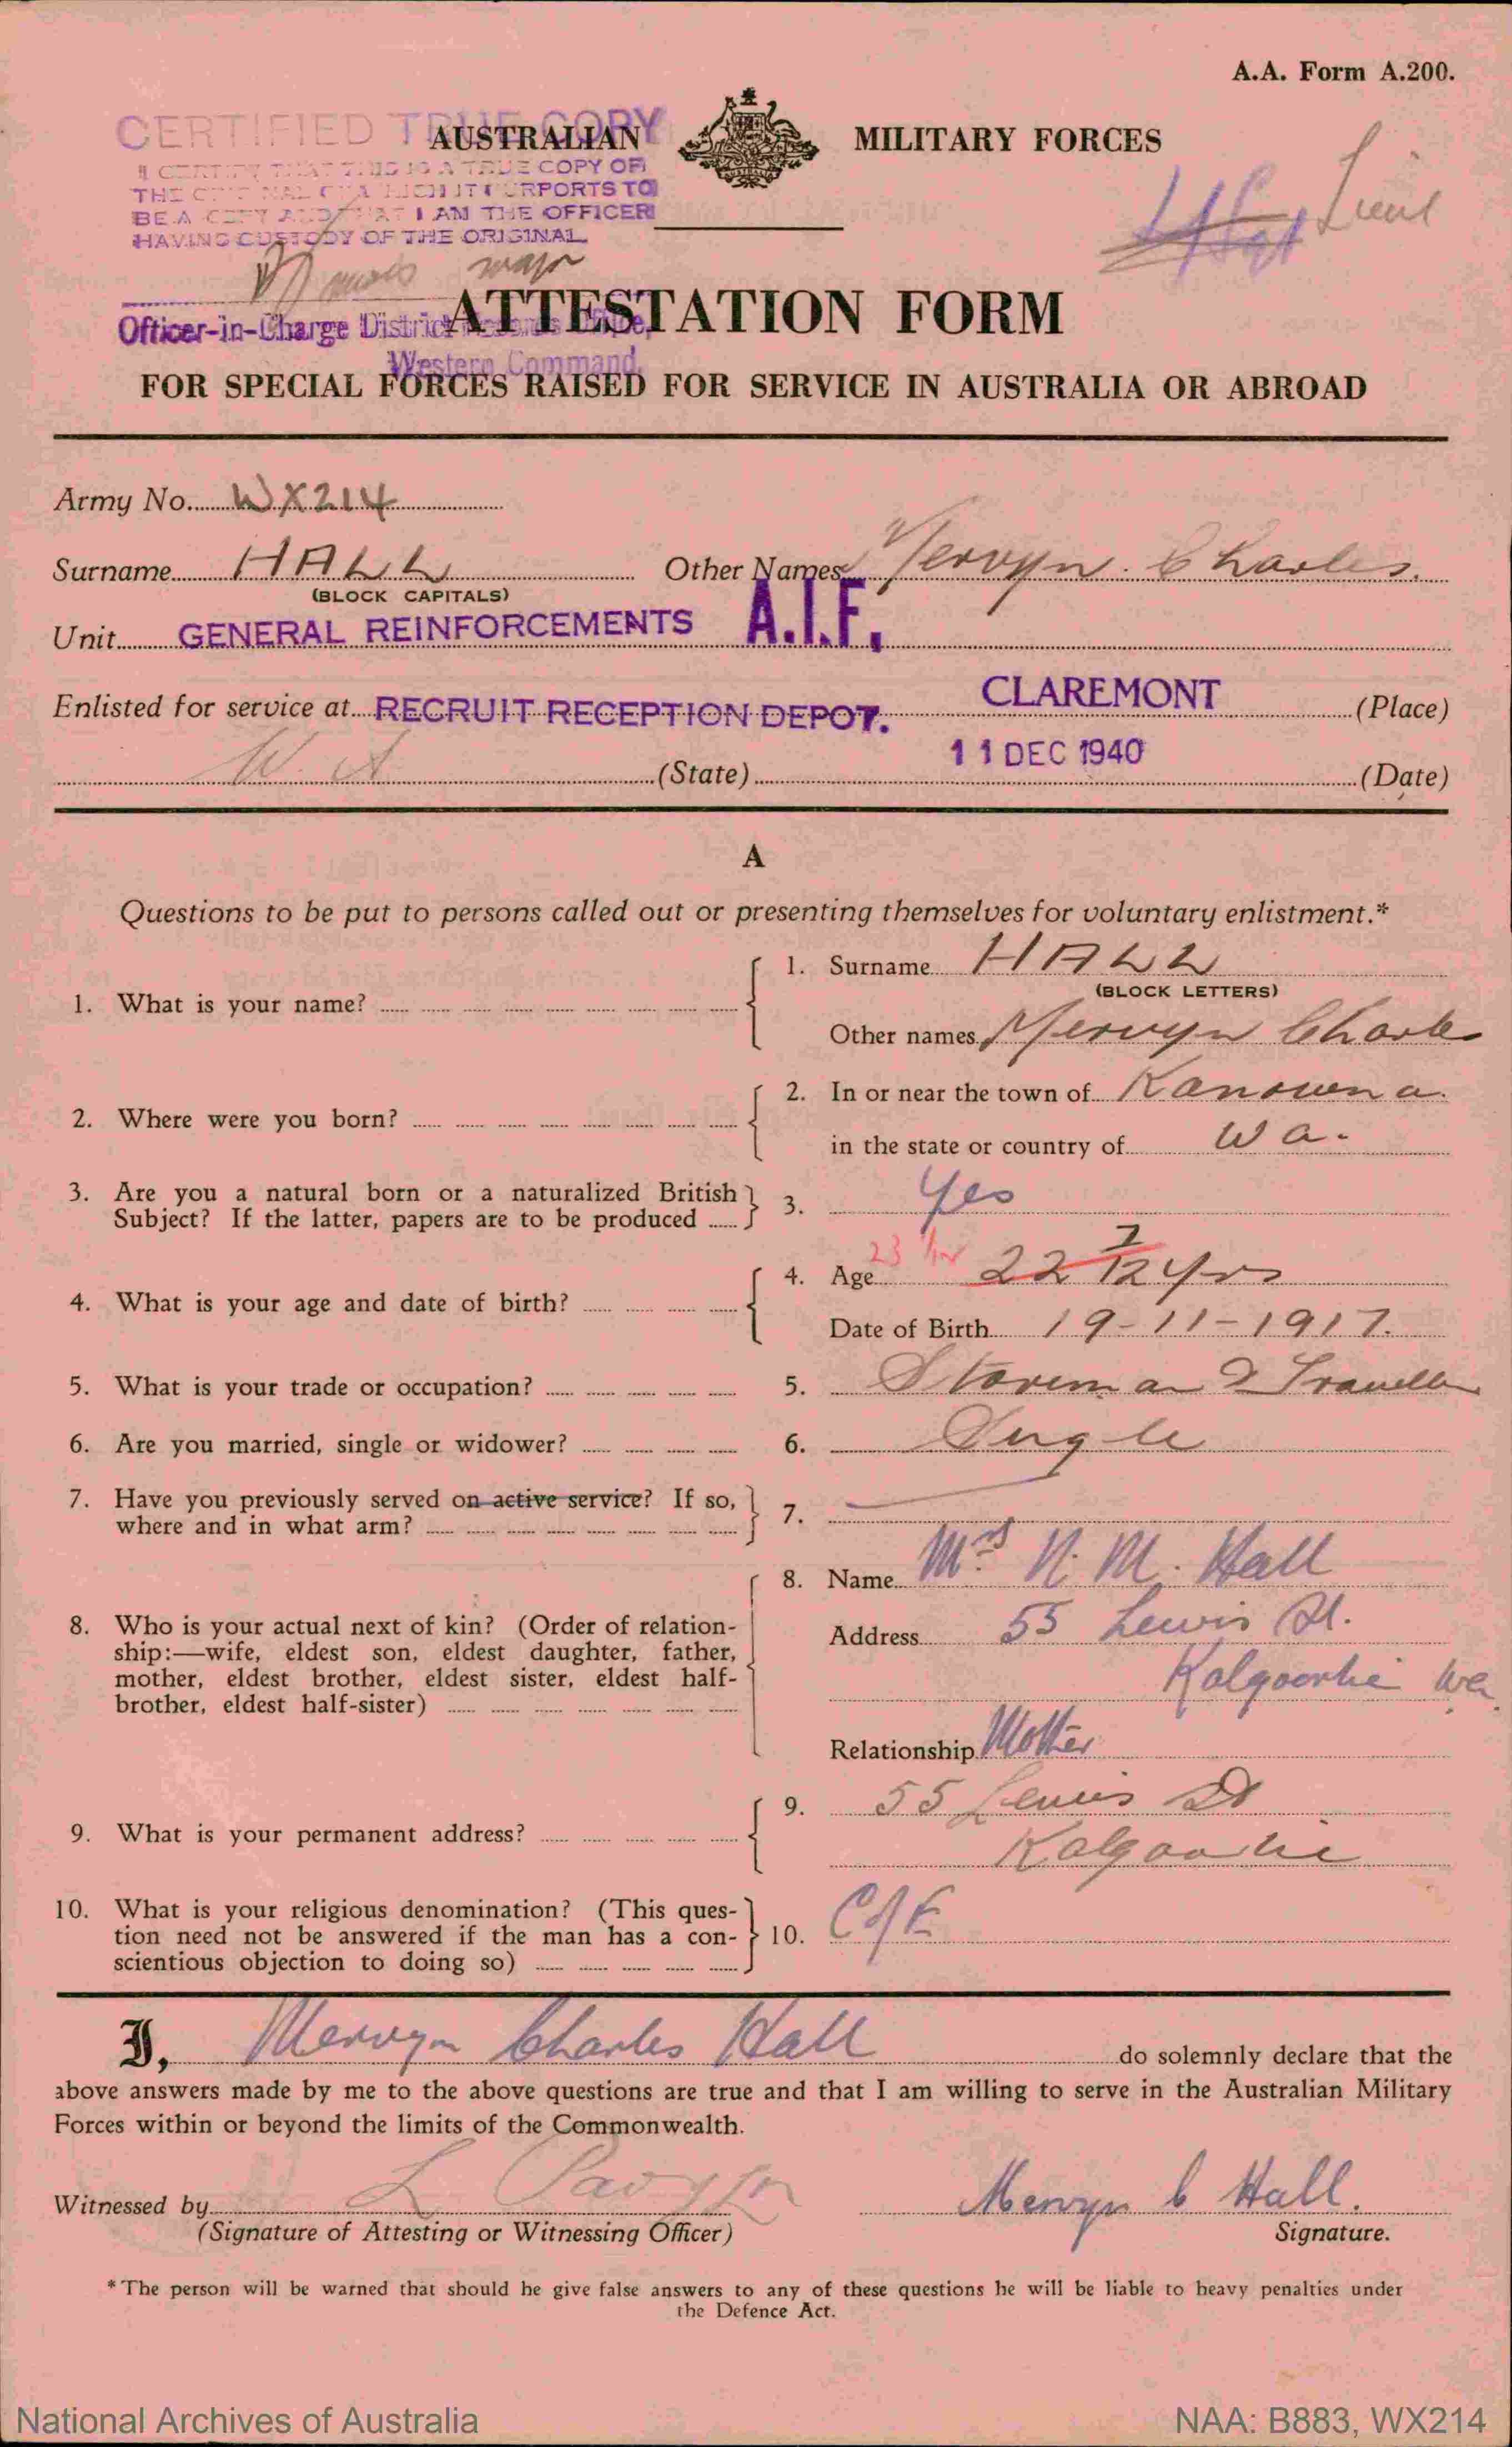 A.A. Form A.200.
CERTIFIED TRUE COPY
AUSTRALIAN MILITARY FORCES
I CERTIFY THAT THIS IS A TRUE COPY OF
THE ORIGINAL OF WHICH IT PURPORTS TO
BE A COPY AND THAT I AM THE OFFICER
HAVING CUSTODY OF THE ORIGINAL
L/Sgt Lieut
Major
ATTESTATION FORM
Officer-in-Charge District Records Office,
Western Command
FOR SPECIAL FORCES RAISED FOR SERVICE IN AUSTRALIA OR ABROAD
Army No. WX214
Surname HALL Other Names Mervyn Charles.
(BLOCK CAPITALS)
Unit GENERAL REINFORCEMENTS A.I.F.
Enlisted for service at RECRUIT RECEPTION DEPOT. CLAREMONT (Place)
W. A (State) 11 DEC 1940 (Date)
A
Questions to be put to persons called out or presenting themselves for voluntary enlistment.*
1. What is your name? 1. Surname HALL
(BLOCK LETTERS)
Other names Mervyn Charles
2. Where were you born? 2. In or near the town of Kanowna.
in the state or country of W a.
3. Are you a natural born or a naturalized British Subject? If the latter, papers are to be produced 3. Yes
4. What is your age and date of birth? 4. Age 23 1/12 22 7/12 yrs
Date of Birth 19-11-1917.
5. What is your trade or occupation? 5. Storeman & Traveller
6. Are you married, single or widower? 6. Single
7. Have you previously served on active service? If so, where and in what arm? 7.
8. Who is your actual next of kin? (Order of relation-
ship:—wife, eldest son, eldest daughter, father,
mother, eldest brother, eldest sister, eldest half-
brother, eldest half-sister)
8. Name Mrs N. M. Hall
Address 55 Lewis St.
Kalgoorlie Wa.
Relationship Mother
9. What is your permanent address? 9. 55 Lewis St
Kalgoorlie
10. What is your religious denomination? (This ques-
tion need not be answered if the man has a con-
scientious objection to doing so) 10. C/E
I, Mervyn Charles Hall do solemnly declare that the
above answers made by me to the above questions are true and that I am willing to serve in the Australian Military
Forces within or beyond the limits of the Commonwealth.
Witnessed by L Mervyn C Hall.
(Signature of Attesting or Witnessing Officer) Signature.
*The person will be warned that should he give false answers to any of these questions he will be liable to heavy penalties under
the Defence Act.
National Archives of Australia NAA: B883, WX214